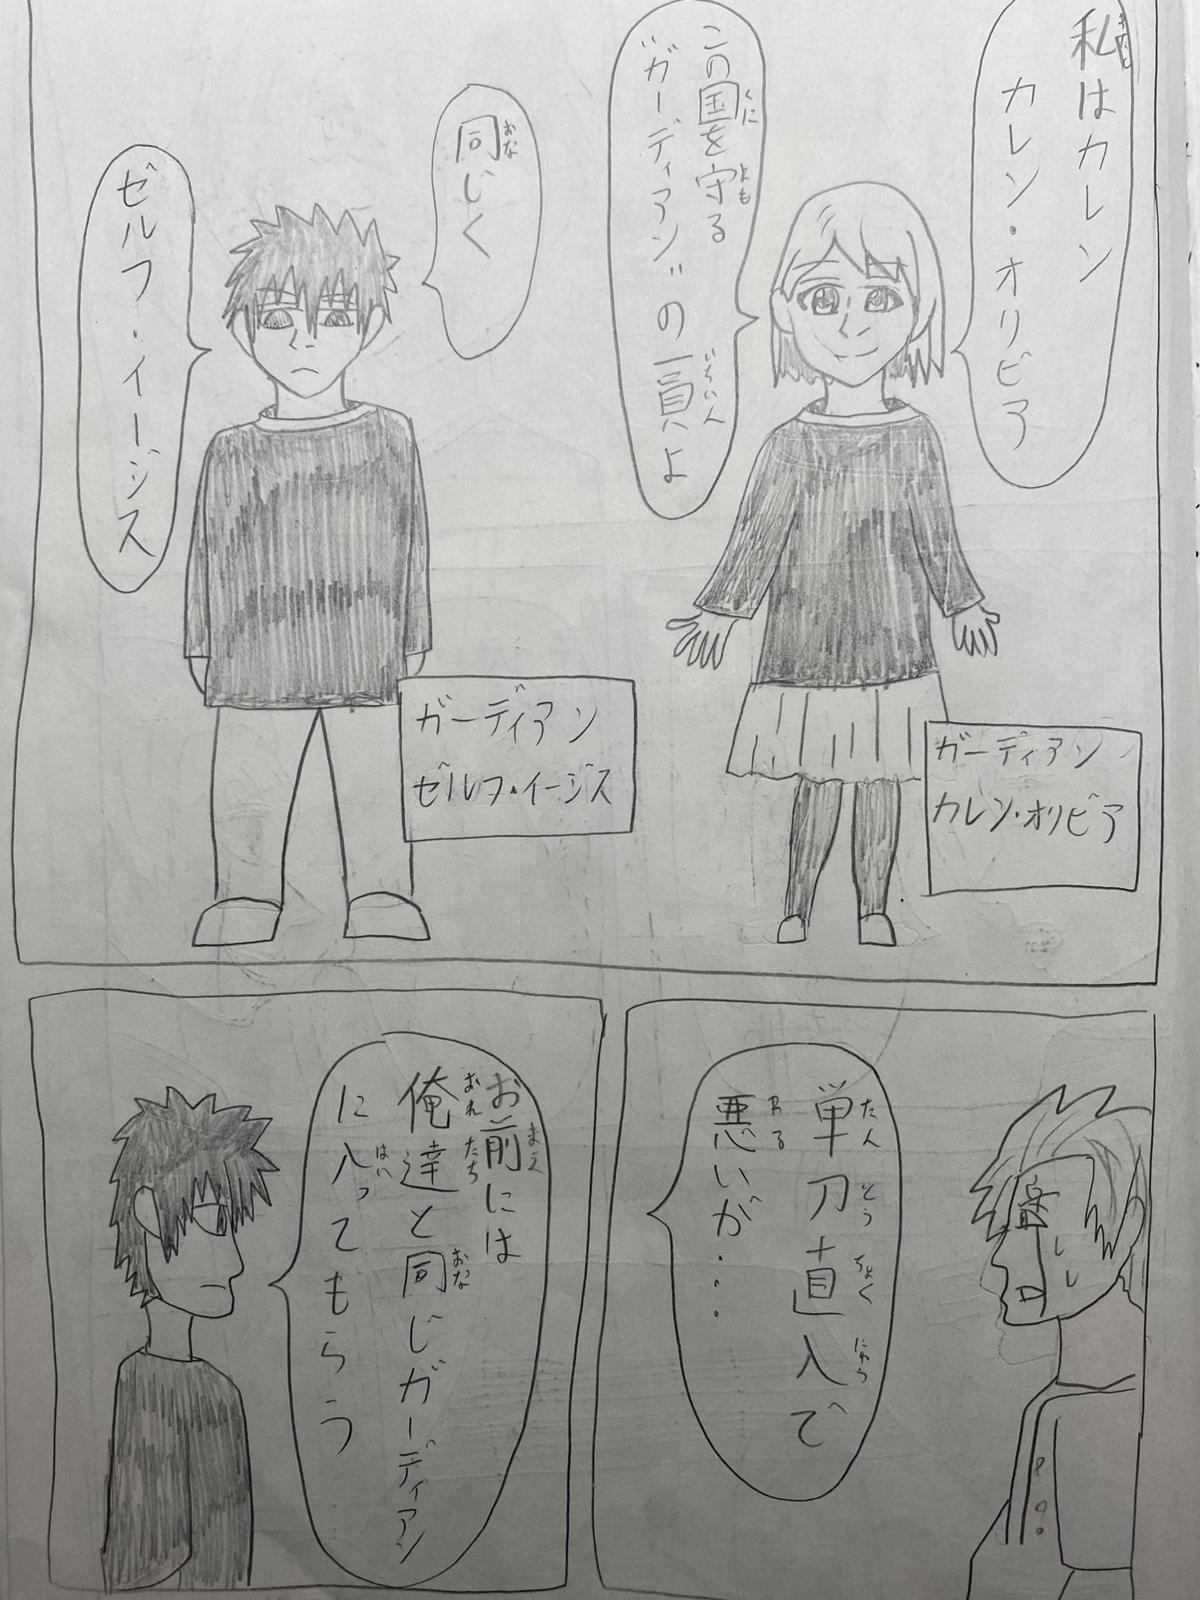 私はカレン
カレン・オリビア
この国を守る
"ガーディアン"の一員よ
ガーディアン
カレン・オリビア
同じく
ゼルフ・イージス
ガーディアン
ゼルフ・イージス
単刀直入で
悪いが・・・
お前には
俺達と同じガーディアン
に入ってもらう